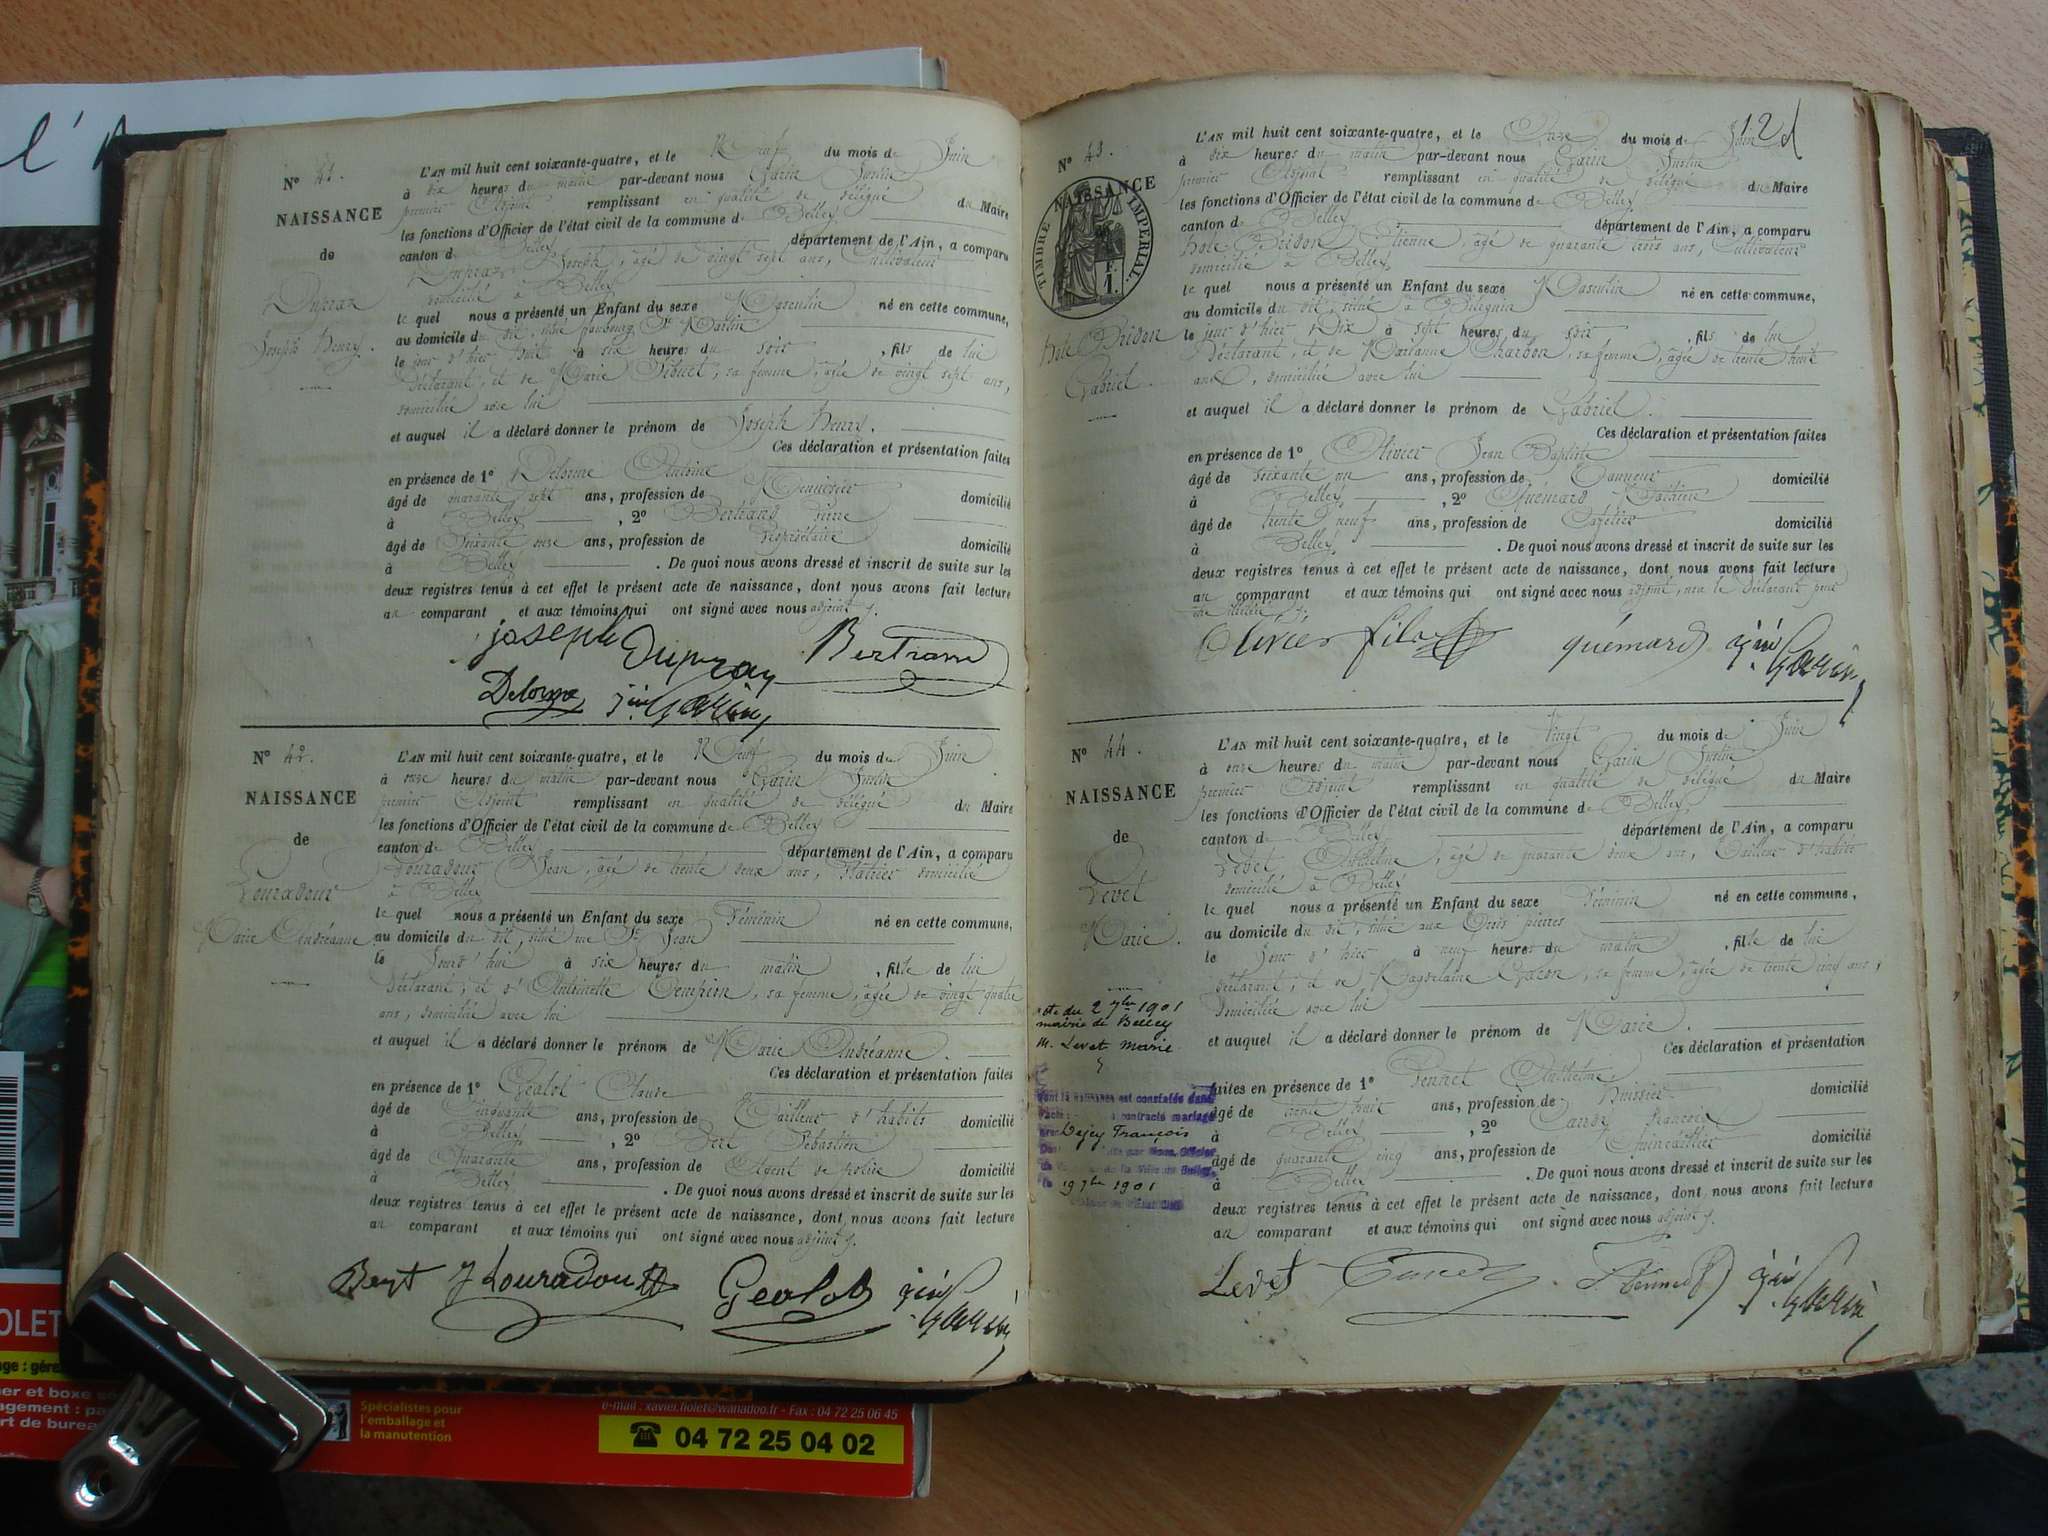 N° 41.
NAISSANCE
de
Dupraz
Joseph Henry.
L'AN mil huit cent soixante-quatre, et le Neuf du mois de Juin
à dix heures du matin par-devant nous Garin Justin
premier Adjoint remplissant en qualité de délégué du Maire
les fonctions d'Officier de l'état civil de la commune de Belley
canton de Belley département de l'Ain, a comparu
Dupraz Joseph, âgé de vingt sept ans, Cultivateur
domicilié à Belley
le quel nous a présenté un Enfant du sexe Masculin né en cette commune,
au domicile du dit, situé faubourg St Martin
le jour d'hier huit à six heures du soir, fils de lui
déclarant, et de Marie sa femme, âgée de vingt sept ans,
domiciliée avec lui
et auquel il a déclaré donner le prénom de Joseph Henry.
Ces déclaration et présentation faites
en présence de 1° Delorme Antoine
âgé de quarante sept ans, profession de Menuisier domicilié
à Belley, 2° Bertrand Pierre
âgé de Soixante onze ans, profession de Propriétaire domicilié
à Belley. De quoi nous avons dressé et inscrit de suite sur les
deux registres tenus à cet effet le présent acte de naissance, dont nous avons fait lecture
au comparant et aux témoins qui ont signé avec nous adjoint
joseph Dupraz Bertrand
Delorme jin Garin
N° 42.
NAISSANCE
de
Louradour
Marie Andréanne
L'AN mil huit cent soixante-quatre, et le Neuf du mois de Juin
à onze heures du matin par-devant nous Garin Justin
premier Adjoint remplissant en qualité de délégué du Maire
les fonctions d'Officier de l'état civil de la commune de Belley
canton de Belley département de l'Ain, a comparu
Louradour Jean, âgé de trente deux ans, domicilié
à Belley
le quel nous a présenté un Enfant du sexe Féminin né en cette commune,
au domicile du dit, situé rue St Jean
le Jourd'hui à six heures du matin, fille de lui
déclarant, et d'Antoinette sa femme, âgée de vingt quatre
ans, domiciliée avec lui
et auquel il a déclaré donner le prénom de Marie Andréanne.
Ces déclaration et présentation faites
en présence de 1° Gealot Claude
âgé de Cinquante ans, profession de Tailleur d'habits domicilié
à Belley, 2° Sébastien
âgé de Quarante ans, profession de Agent de police domicilié
à Belley. De quoi nous avons dressé et inscrit de suite sur les
deux registres tenus à cet effet le présent acte de naissance, dont nous avons fait lecture
au comparant et aux témoins qui ont signé avec nous adjoint
Louradour Gealot jin Garin
12
N° 43.
NAISSANCE
TIMBRE IMPERIAL
F.
1.
Hote Bridon
Gabriel.
L'AN mil huit cent soixante-quatre, et le Onze du mois de Juin
à dix heures du matin par-devant nous Garin Justin
premier Adjoint remplissant en qualité de délégué du Maire
les fonctions d'Officier de l'état civil de la commune de Belley
canton de Belley département de l'Ain, a comparu
Hote Bridon Etienne, âgé de quarante trois ans, Cultivateur
domicilié à Belley
le quel nous a présenté un Enfant du sexe Masculin né en cette commune,
au domicile du dit, situé à
le jour d'hier Dix à sept heures du soir, fils de lui
déclarant, et de Marianne Charbon, sa femme, âgée de trente huit
ans, domiciliée avec lui
et auquel il a déclaré donner le prénom de Gabriel.
Ces déclaration et présentation faites
en présence de 1° Olivier Jean Baptiste
âgé de soixante un ans, profession de Tanneur domicilié
à Belley, 2° Quémard
âgé de trente neuf ans, profession de Cafetier domicilié
à Belley. De quoi nous avons dressé et inscrit de suite sur les
deux registres tenus à cet effet le présent acte de naissance, dont nous avons fait lecture
au comparant et aux témoins qui ont signé avec nous adjoint, non le déclarant pour
être illettré
Olivier fils quémard jin Garin
N° 44.
NAISSANCE
de
Levet
Marie.
L'AN mil huit cent soixante-quatre, et le Vingt du mois de Juin
à onze heures du matin par-devant nous Garin Justin
premier Adjoint remplissant en qualité de délégué du Maire
les fonctions d'Officier de l'état civil de la commune de Belley
canton de Belley département de l'Ain, a comparu
Levet Anthelme, âgé de quarante deux ans, Tailleur d'habits
domicilié à Belley
le quel nous a présenté un Enfant du sexe Féminin né en cette commune,
au domicile du dit, situé aux Trois pierres
le Jour d'hier à neuf heures du matin, fille de lui
déclarant, et de Magdelaine sa femme, âgée de trente cinq ans,
domiciliée avec lui
et auquel il a déclaré donner le prénom de Marie.
Ces déclaration et présentation
faites en présence de 1° Pennet Anthelme
âgé de trente huit ans, profession de Huissier domicilié
à Belley, 2° François
âgé de quarante cinq ans, profession de Quincaillier domicilié
à Belley. De quoi nous avons dressé et inscrit de suite sur les
deux registres tenus à cet effet le présent acte de naissance, dont nous avons fait lecture
au comparant et aux témoins qui ont signé avec nous adjoint
Levet Pennet jin Garin
du 2 7bre 1901
mairie de Belley
M. Levet Marie
dont la naissance est constatée dans
contracté mariage
François
de la Ville de Belley
19 7bre 1901
l'
OLET
e-mail : xavier.fiolet@wanadoo.fr - Fax : 04 72 25 06 45
☎ 04 72 25 04 02
Spécialistes pour
l'emballage et
la manutention